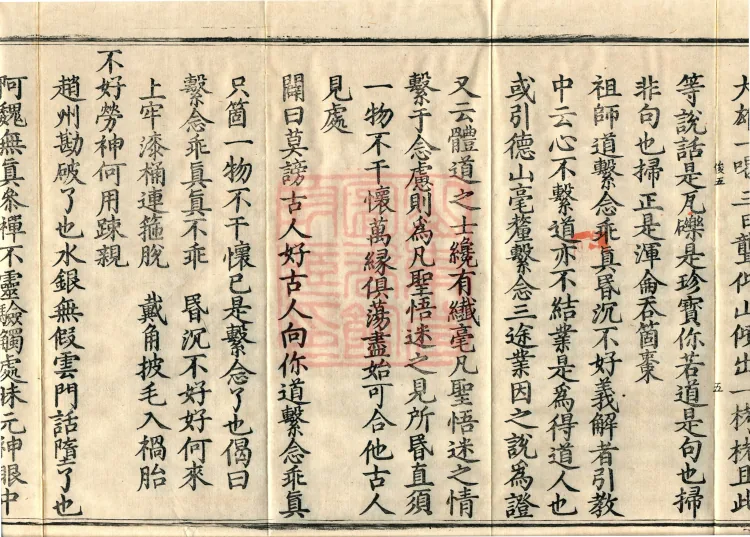 大雄一喝三日聾他山傾出一栲栳且此
等說話是瓦礫是珍寶你若道是句也掃
非句也掃正是渾侖吞箇棗
祖師道繫念乖真昏沉不好義解者引教
中云心不繫道亦不結業是為得道人也
或引德山毫釐繫念三途業因之說為證
又云體道之士纔有纖毫凡聖悟迷之情
繫于念慮則為凡聖悟迷之見所昏直須
一物不干懷萬緣俱蕩盡始可合他古人
見處
闢曰莫謗古人好古人向你道繫念乖真
只箇一物不干懷已是繫念了也偈曰
繫念乖真真不乖 昏沉不好好何來
上牢漆桶連箍脫 戴角披毛入禍胎
不好勞神何用疎親
趙州勘破了也水銀無假雲門話墮了也
阿魏無真參禪不靈驗觸處昧元神眼中
俊五
五